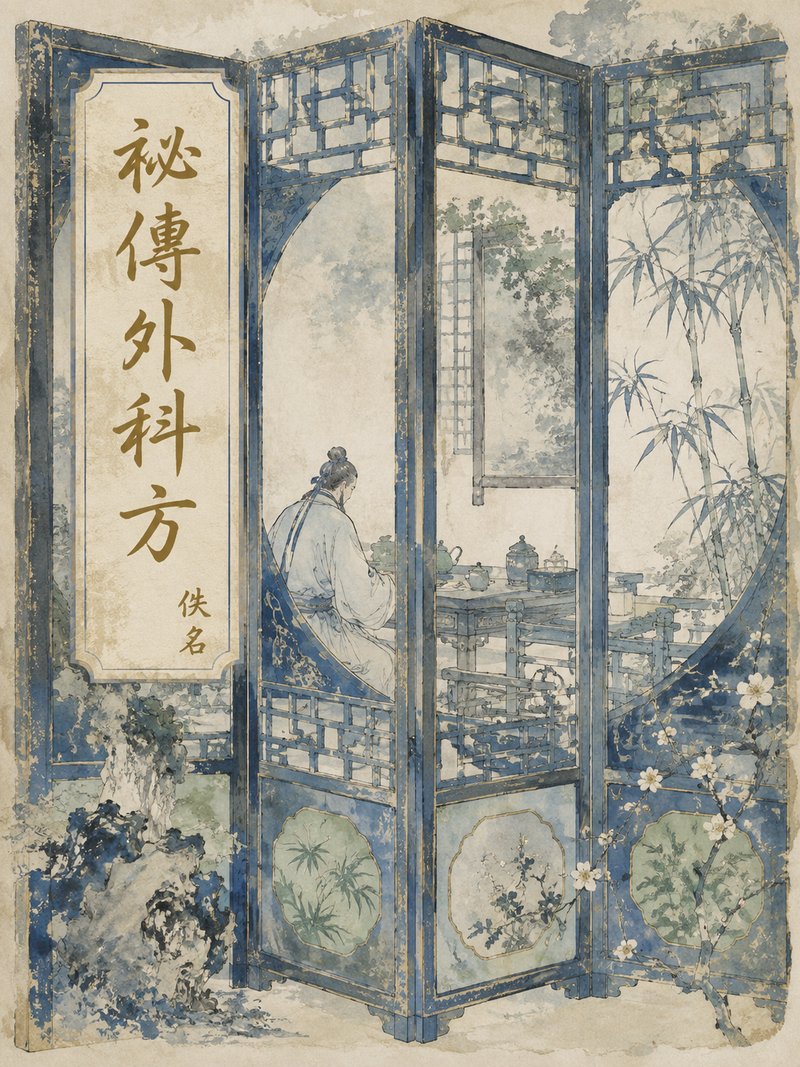 祕傳外科方
佚名